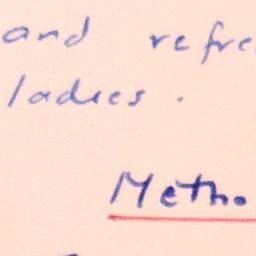 and refre
ladies.
Metho